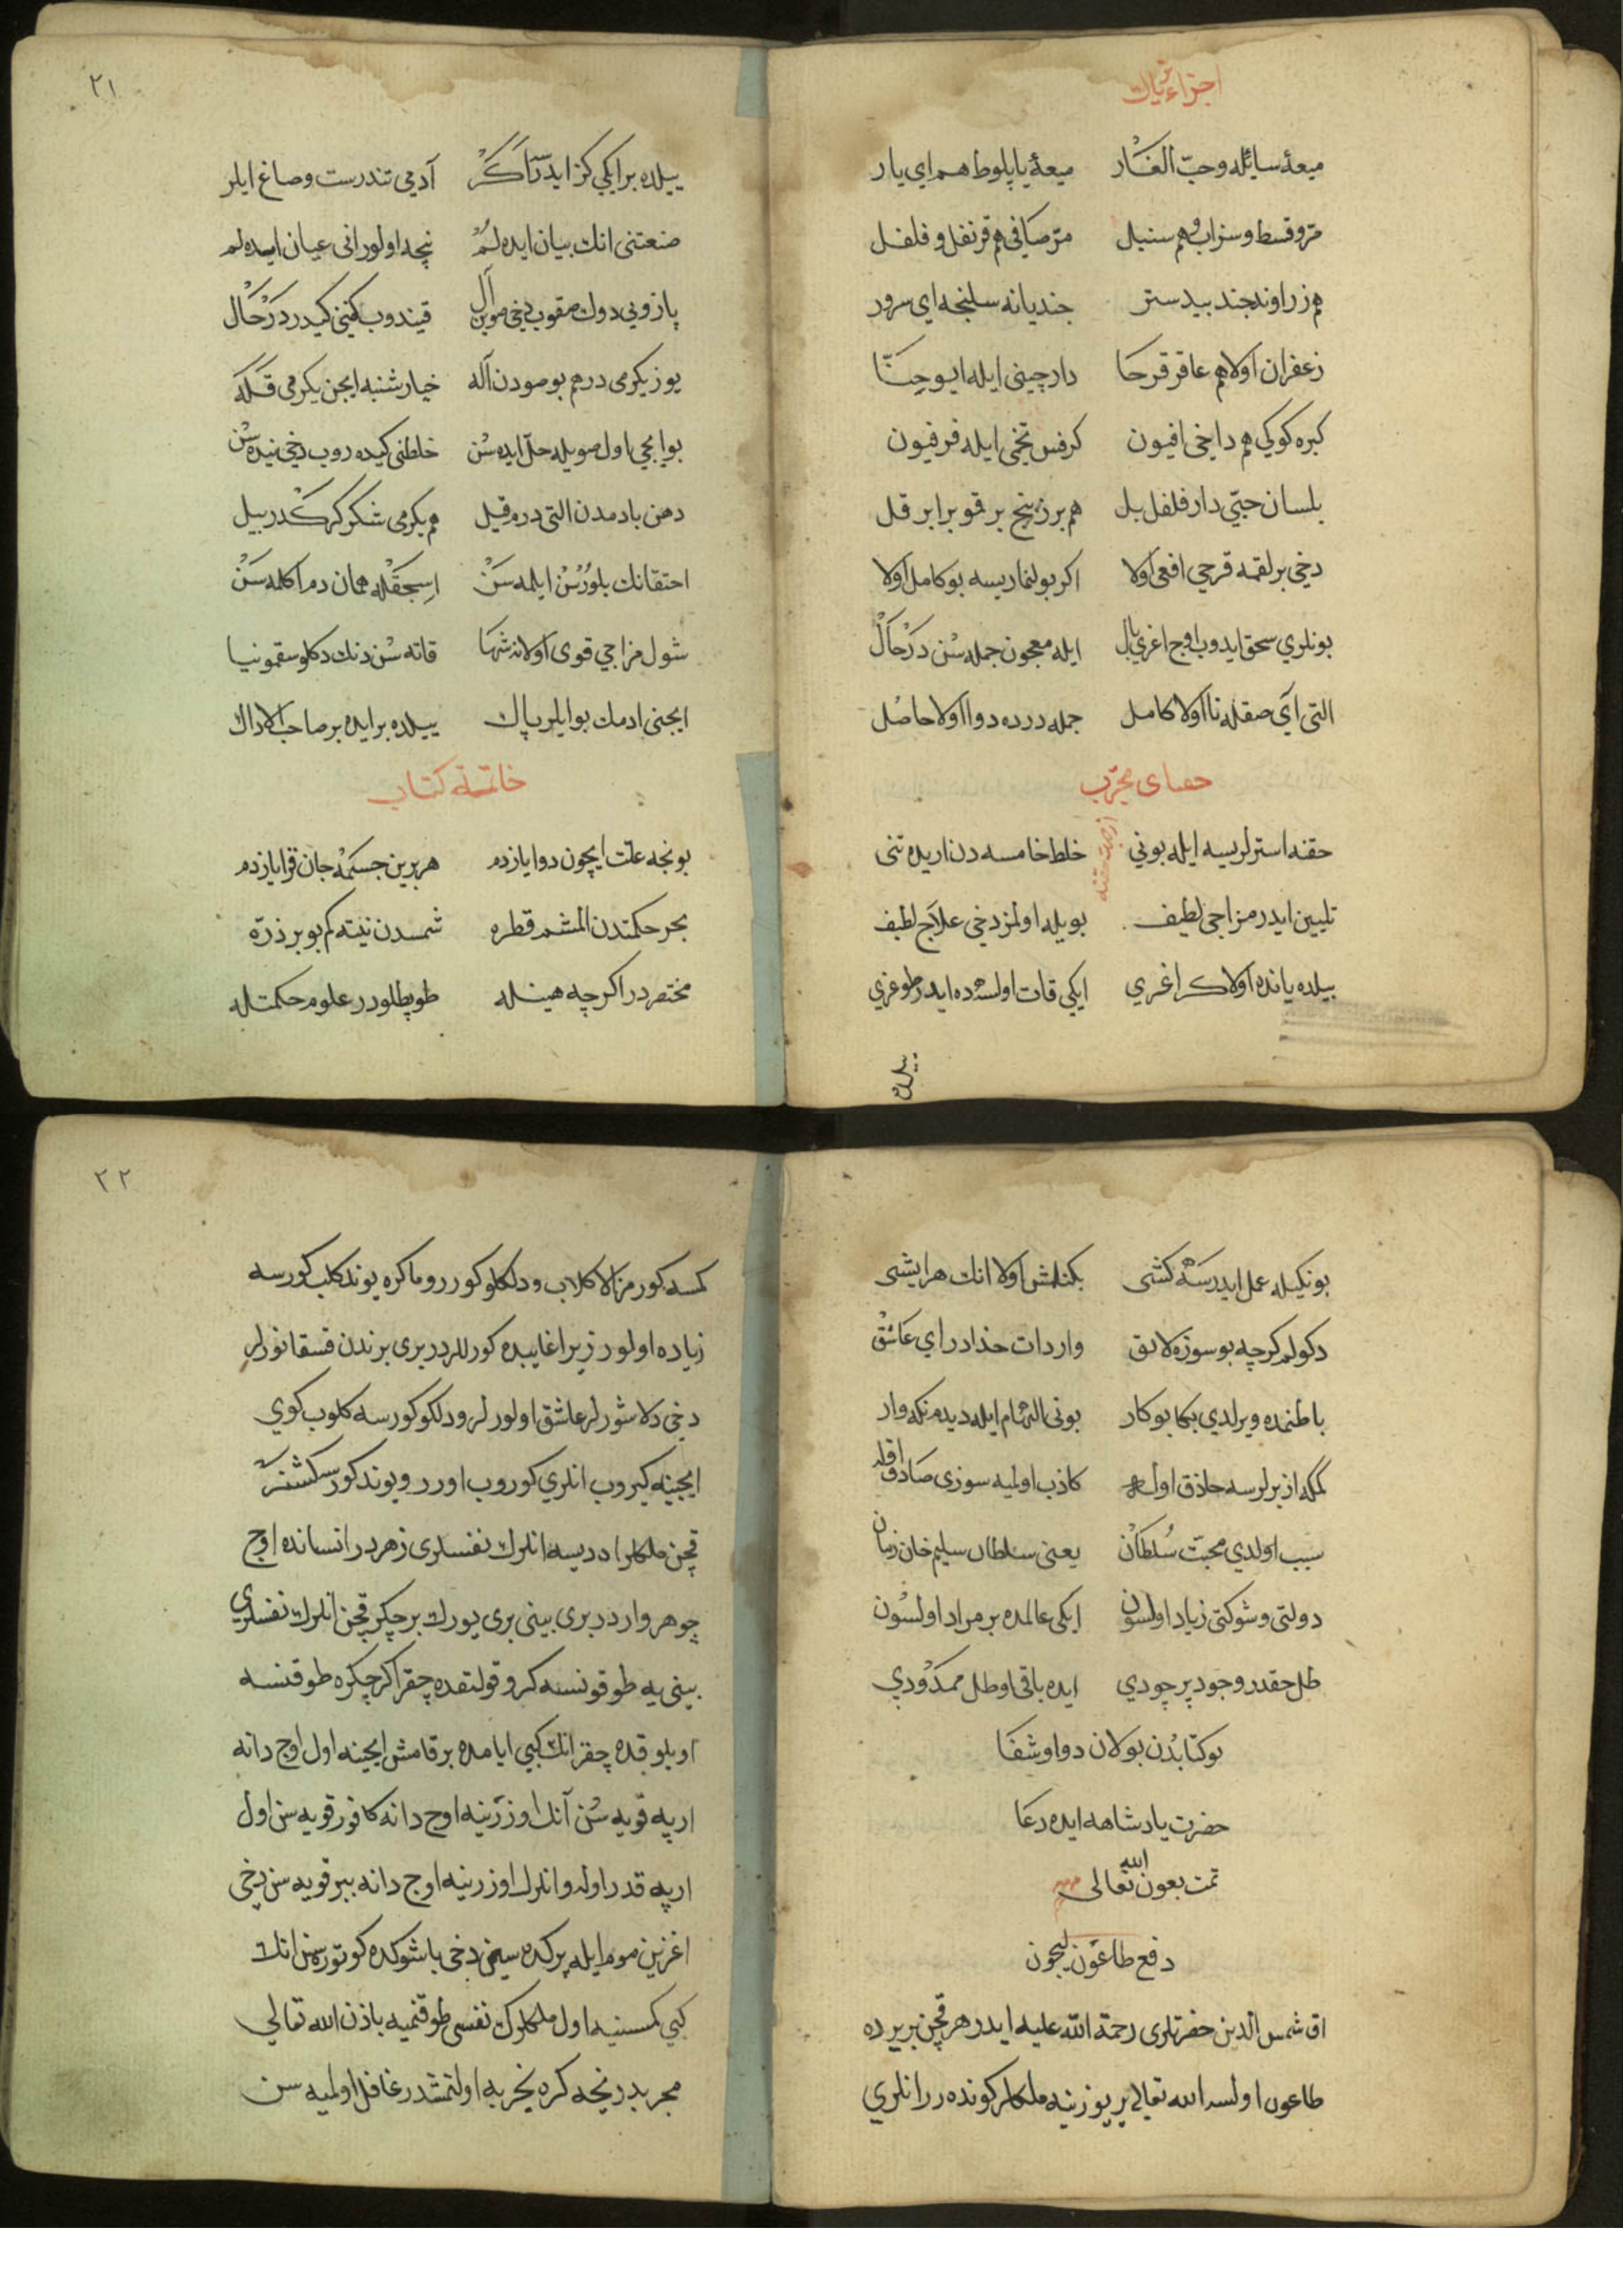 اجزاء ترياك
ميعۀ سائله وحبّ الغار ميعۀ يابلوط هم اى يار
مرّ وقسط وسزاب وهم سنبل مرّ صافى هم قرنفل و فلفل
هم زراوند جند بيدستر جنديانه سلنجه اى سرور
زعفران اولا هم عاقر قرحا دارچينى ايله ايو جنّا
كبره كوكى هم داخى افيون كرفس تخمى ايله فرفيون
بلسان حبّى دارفلفل بل هم برزبنج بر قو برابر قل
دخى بر لقمه قرحى افعى اولا اكر بولنماريسه بو كامل اولا
بونلرى سحق ايدوب اوچ اغرى بال ايله معجون جمله سن درحال
التى آى صقله تا اولا كامل جمله درده دوا اولا حاصل
حقناى مجرّب
حقنه استرلريسه ايله بونى خلط خامسه دن اريده تنى
تليين ايدر مزاجى لطيف بويله اولمز دخى علاج لطيف
بيلده يانده اولا كر اغرى ايكى قات اولسه ده ايدر طوغرى
ييلده
٢١
ييلده بر ايكى كز ايدرسك كر آدمى تندرست وصاغ ايلر
صنعتنى انك بيان ايده لم نيجه اولور انى عيان ايده لم
پازويى دوك صقوب دخى صوين آل قيندوب كفنى كيدر درحال
يوز يكرمى درهم بو صودن آله خيارشنبه ايچن يكرمى قله
بو ايچى اول صويله حلّ ايده سن خلطنى كيده روب دخى نيده سن
دهن بادمدن التى درم قيل هم يكرمى شكر كركدر بيل
احتقانك بلورسن ايلمه سن اسجقله همان دم اكلمه سن
شول مزاجى قوى اولانه شها قاته سن دنك دكلو سقمونيا
ايچنى ادمك بو ايلر پاك ييلده بر ايده بر صاحب ادراك
خاتمۀ كتاب
بونجه علّت ايچون دوا يازدم هر بريں جسمه جان قزا يازدم
بحر حكمتدن المشم قطره شمسدن نيته كم بو بر ذرّه
مختصردر اكرچه همينله طوپطلودر علوم حكمتله
بونكيله عمل ايدرسه كشى بكنلمش اولا انك هر ايشى
دكولم كرچه بو سوزه لايق واردات خدادر اى عاشق
باطنمده ويرلدى بكا بو كار بونى الهام ايله ديدم نكه وار
كمكه ازبرلرسه حاذق اوله كاذب اولميه سوزى صادق اوله
سبب اولدى محبّت سلطان يعنى سلطان سليم خان زمان
دولتى وشوكتى زياد اولسون ايكى عالمده بر مراد اولسون
ظل حقدر وجود پر جودى ايده باقى او ظل ممدودى
بو كتابدن بولان دوا و شفا
حضرت پادشاهه ايده دعا
تمت بعون الله تعالى
دفع طاعون ايچون
اق شمس الدين حضرتلرى رحمة الله عليه ايدر هر قچن بر يرده
طاعون اولسه الله تعالى ير يوزينه ملكلر كوندهرر انلرى
٢٢
كمسه كورمز الا كلاب و دلكلو كورر و ماكره يوند كلب كورسه
زياده اولور زيرا غايبده كورللردر برى برندن قسقانورلر
دخى دلاشورلر عاشق اولورلر ودلكو كورسه كلوب كوى
ايچينه كيروب انلرى كوروب اورر ويوند كورسه كشنر
قچن ملكلر اددريسه انلرك نفسلرى زهردر انسانده اوچ
جوهر واردر برى بينى برى يورك بر جكر قچن انلرك نفسلرى
بينى يه طوقونسه كرو قولتقده چقر اكر جكره طوقنسه
اويلوقده چقر انك كبى ايامده بر قامش ايچينه اول اوچ دانه
ارپه قويه سن آنك اوزرينه اوچ دانه كافور قويه سن اول
ارپه قدر اوله و انلرك اوزرينه اوچ دانه ببر قويه سن دخى
اغزين موم ايله پركده سين دخى باشوكده كوتوره سن انك
كبى كمسنيه اول ملكلرك نفسى طوقنميه باذن الله تعالى
مجربدر نيجه كره تجربه اولنمشدر غافل اولميه سن